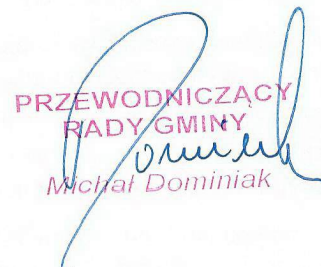 PRZEWODNICZĄCY
RADY GMINY
Michał Dominiak